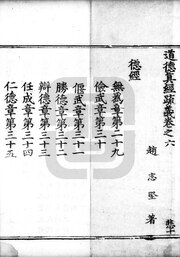 道德真經疏義卷之六
趙志堅著
德經
無為章第二十九
儉武章第三十
偃武章第三十一
勝德章第三十二
辯德章第三十三
任成章第三十四
仁德章第三十五